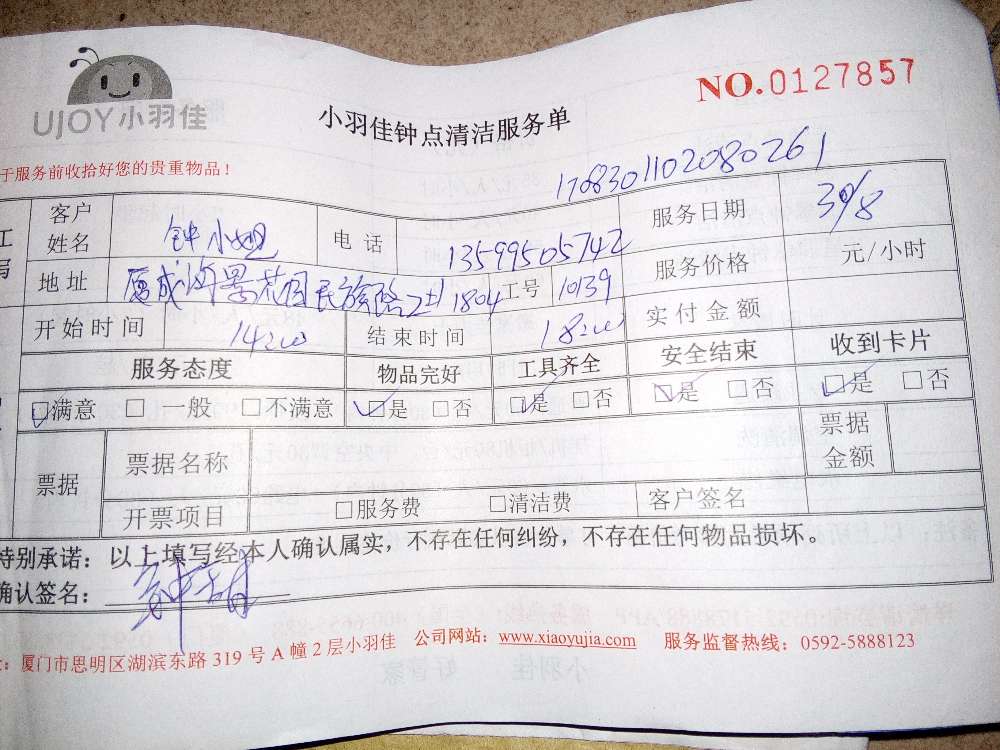 UJOY小羽佳
NO.0127857
小羽佳钟点清洁服务单
于服务前收拾好您的贵重物品！
1708301102080261
客户姓名 钟小姐 电话 13599505742 服务日期 30/8
地址 夏成海景花园民族路 1804 工号 10139 服务价格 元/小时
开始时间 14:00 结束时间 18:00 实付金额
服务态度 物品完好 工具齐全 安全结束 收到卡片
☑满意 □一般 □不满意 ☑是 □否 ☑是 □否 ☑是 □否 ☑是 □否
票据 票据名称 票据金额
开票项目 □服务费 □清洁费 客户签名
特别承诺：以上填写经本人确认属实，不存在任何纠纷，不存在任何物品损坏。
确认签名：
厦门市思明区湖滨东路 319 号 A 幢 2 层小羽佳 公司网站：www.xiaoyujia.com 服务监督热线：0592-5888123